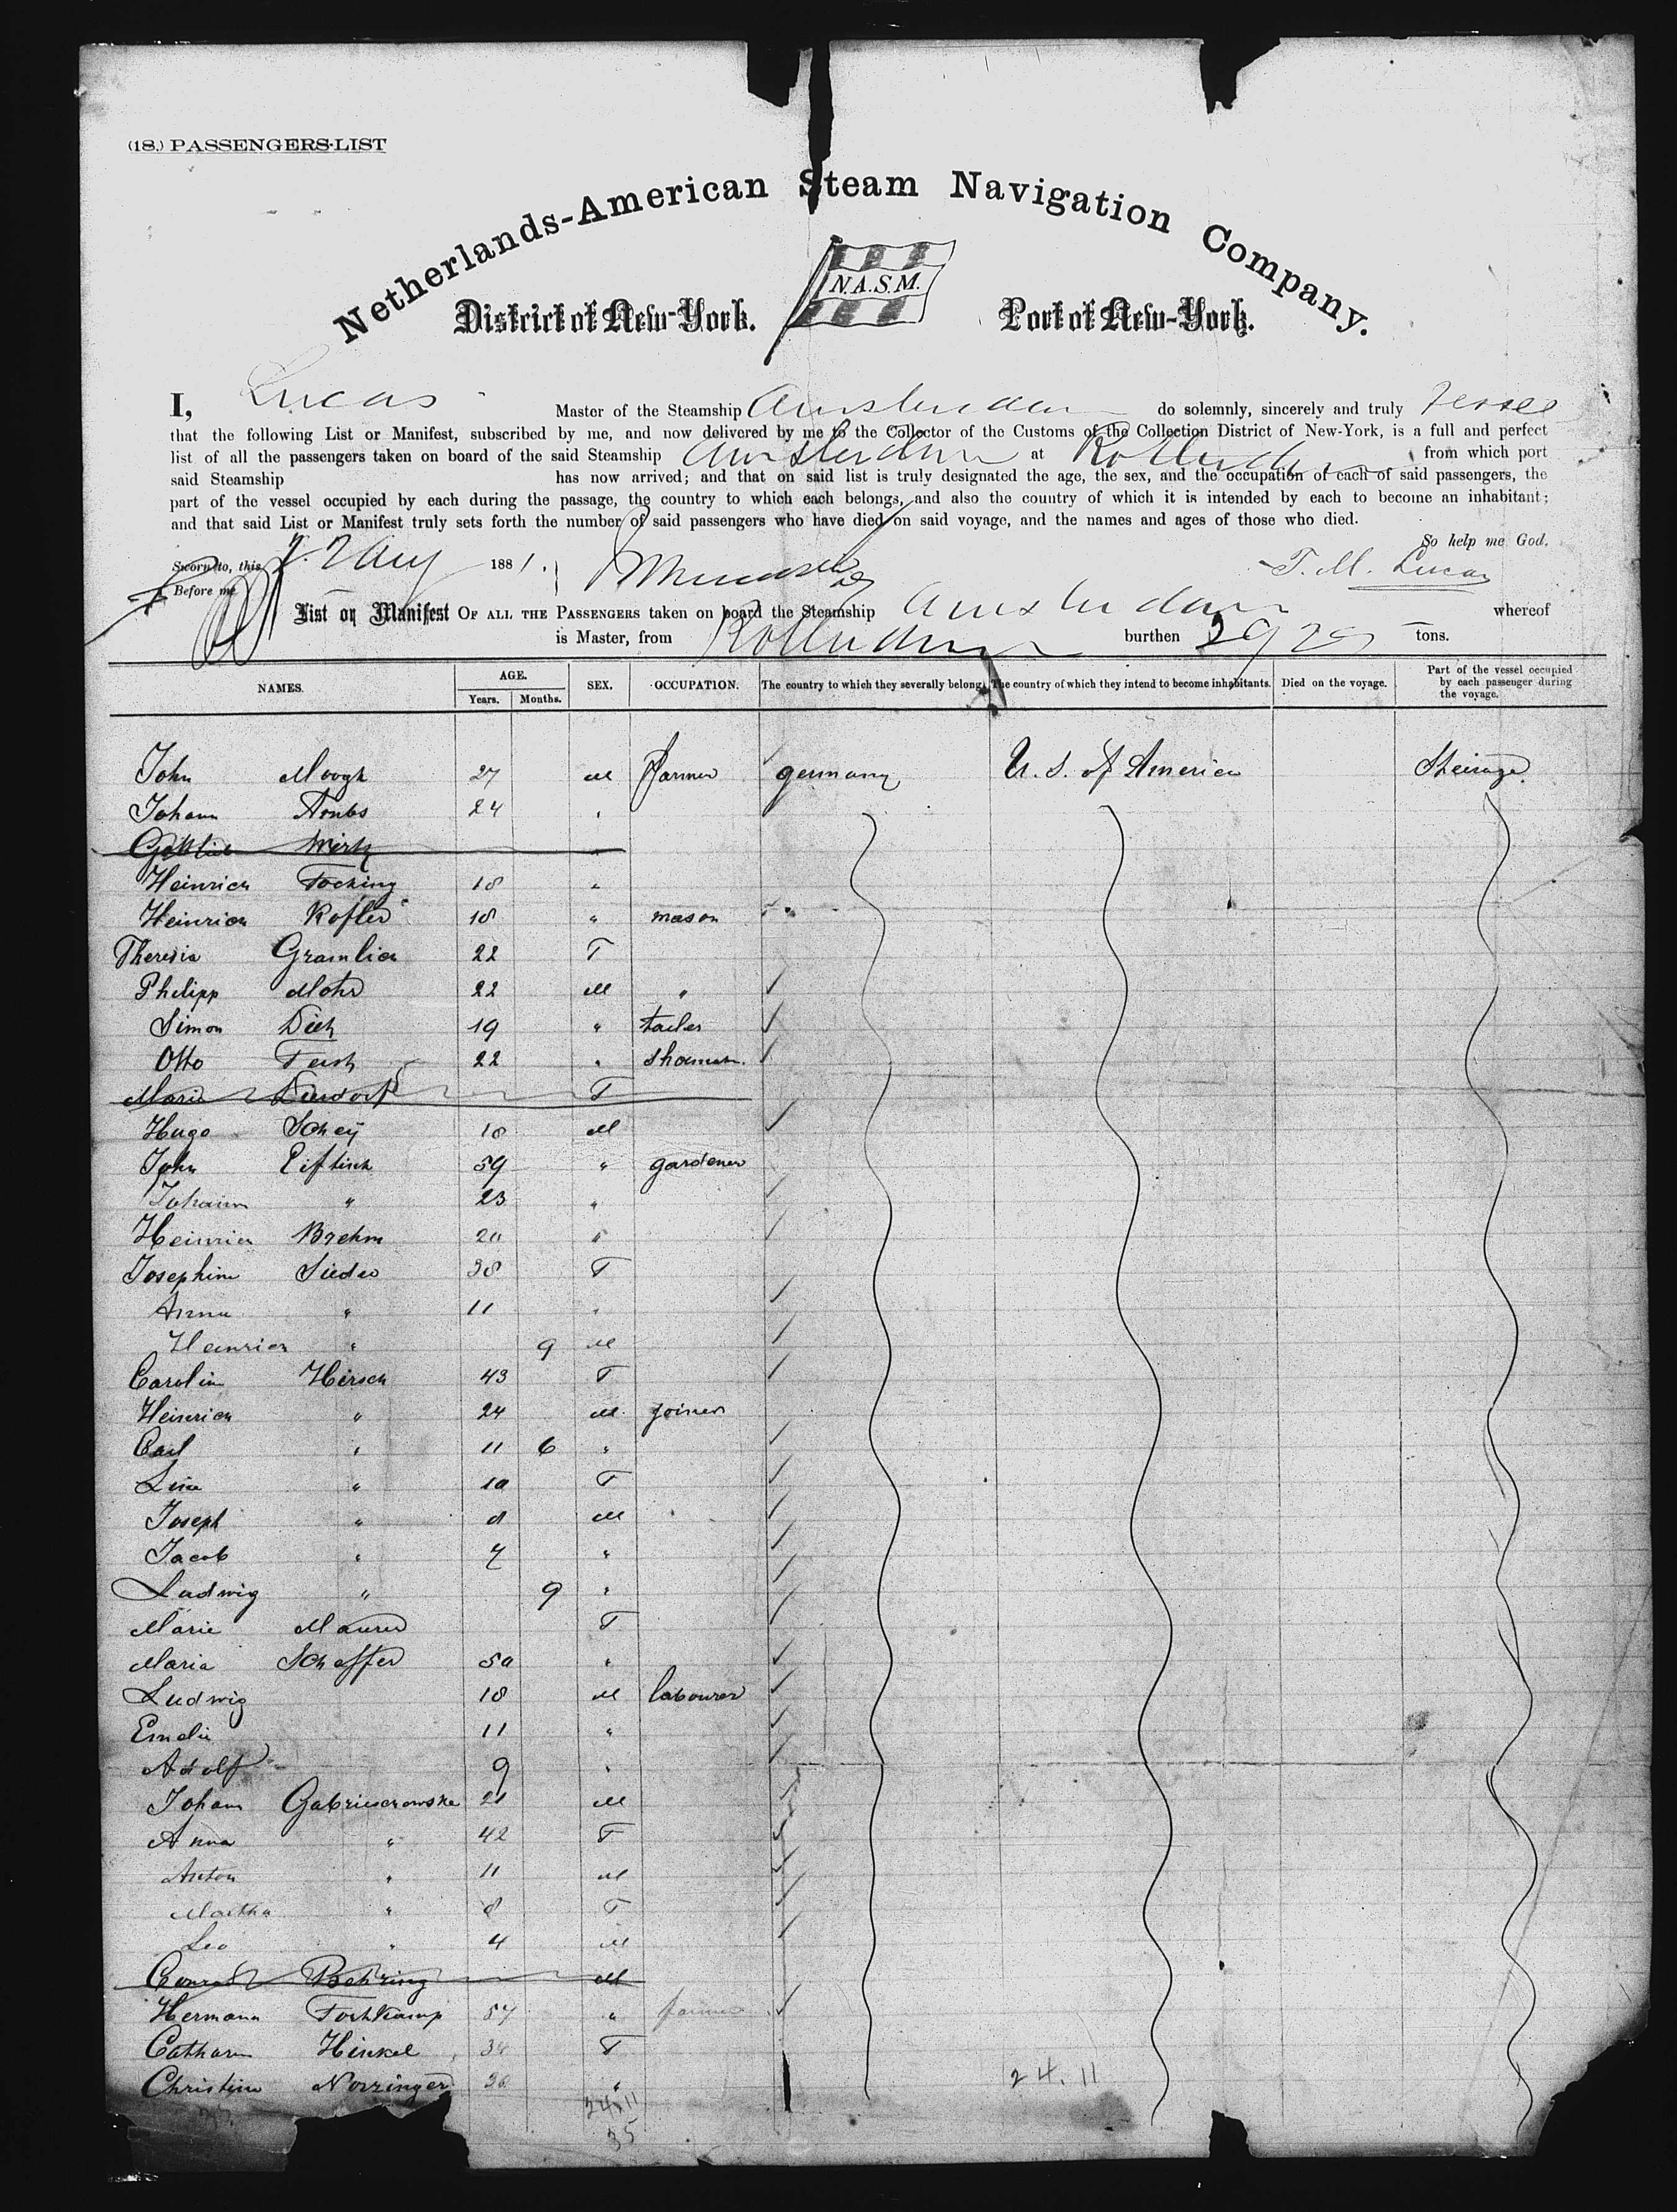 (18.) PASSENGERS-LIST
Netherlands-American Steam Navigation Company.
N.A.S.M.
District of New-York. Port of New-York.
I, Lucas Master of the Steamship Amsterdam do solemnly, sincerely and truly
that the following List or Manifest, subscribed by me, and now delivered by me to the Collector of the Customs of the Collection District of New-York, is a full and perfect
list of all the passengers taken on board of the said Steamship Amsterdam at Rotterdam from which port
said Steamship has now arrived; and that on said list is truly designated the age, the sex, and the occupation of each of said passengers, the
part of the vessel occupied by each during the passage, the country to which each belongs, and also the country of which it is intended by each to become an inhabitant;
and that said List or Manifest truly sets forth the number of said passengers who have died on said voyage, and the names and ages of those who died.
So help me God.
Sworn to, this 1881. T. M. Lucas
Before me
List or Manifest OF ALL THE PASSENGERS taken on board the Steamship Amsterdam whereof
is Master, from Rotterdam burthen tons.
NAMES. AGE. Years. Months. SEX. OCCUPATION. The country to which they severally belong. The country of which they intend to become inhabitants. Died on the voyage. Part of the vessel occupied by each passenger during the voyage.
John Moogk 27 M farmer germany U. S. of America Steirage
Johann 24
Gottlieb Wirtz
Heinrich Focking 18 "
Heinrich Kofler 18 " mason
Theresia Gramlich 22 F
Philipp Mohr 22 M "
Simon Dich 19 " tailer
Otto 22 "
Marie F
Hugo Schey 18 M
John Eiftisch 59 " gardener
Johann " 23 "
Heinrich Brehm 20 "
Josephine 38 F
Anna " 11 "
Heinrich " 9 M
Carolin Hirsch 43 F
Heinrich " 24 M joiner
Carl " 11 6 "
Line " 10 F
Joseph " 8 M
Jacob " 7 "
Ludwig " 9 "
Marie Maurer F
Maria Schaffer 50 "
Ludwig 18 M labourer
Emelie 11 "
Adolf 9 "
Johann 21 M
Anna " 42 F
Anton " 11 M
Martha " 8 F
Leo " 4 M
Conrad Behring M
Hermann Fortkamp 57 " farmer
Catharin Hinkel 34 F
Christine Norzinger 36 "
24.11
24.11
35